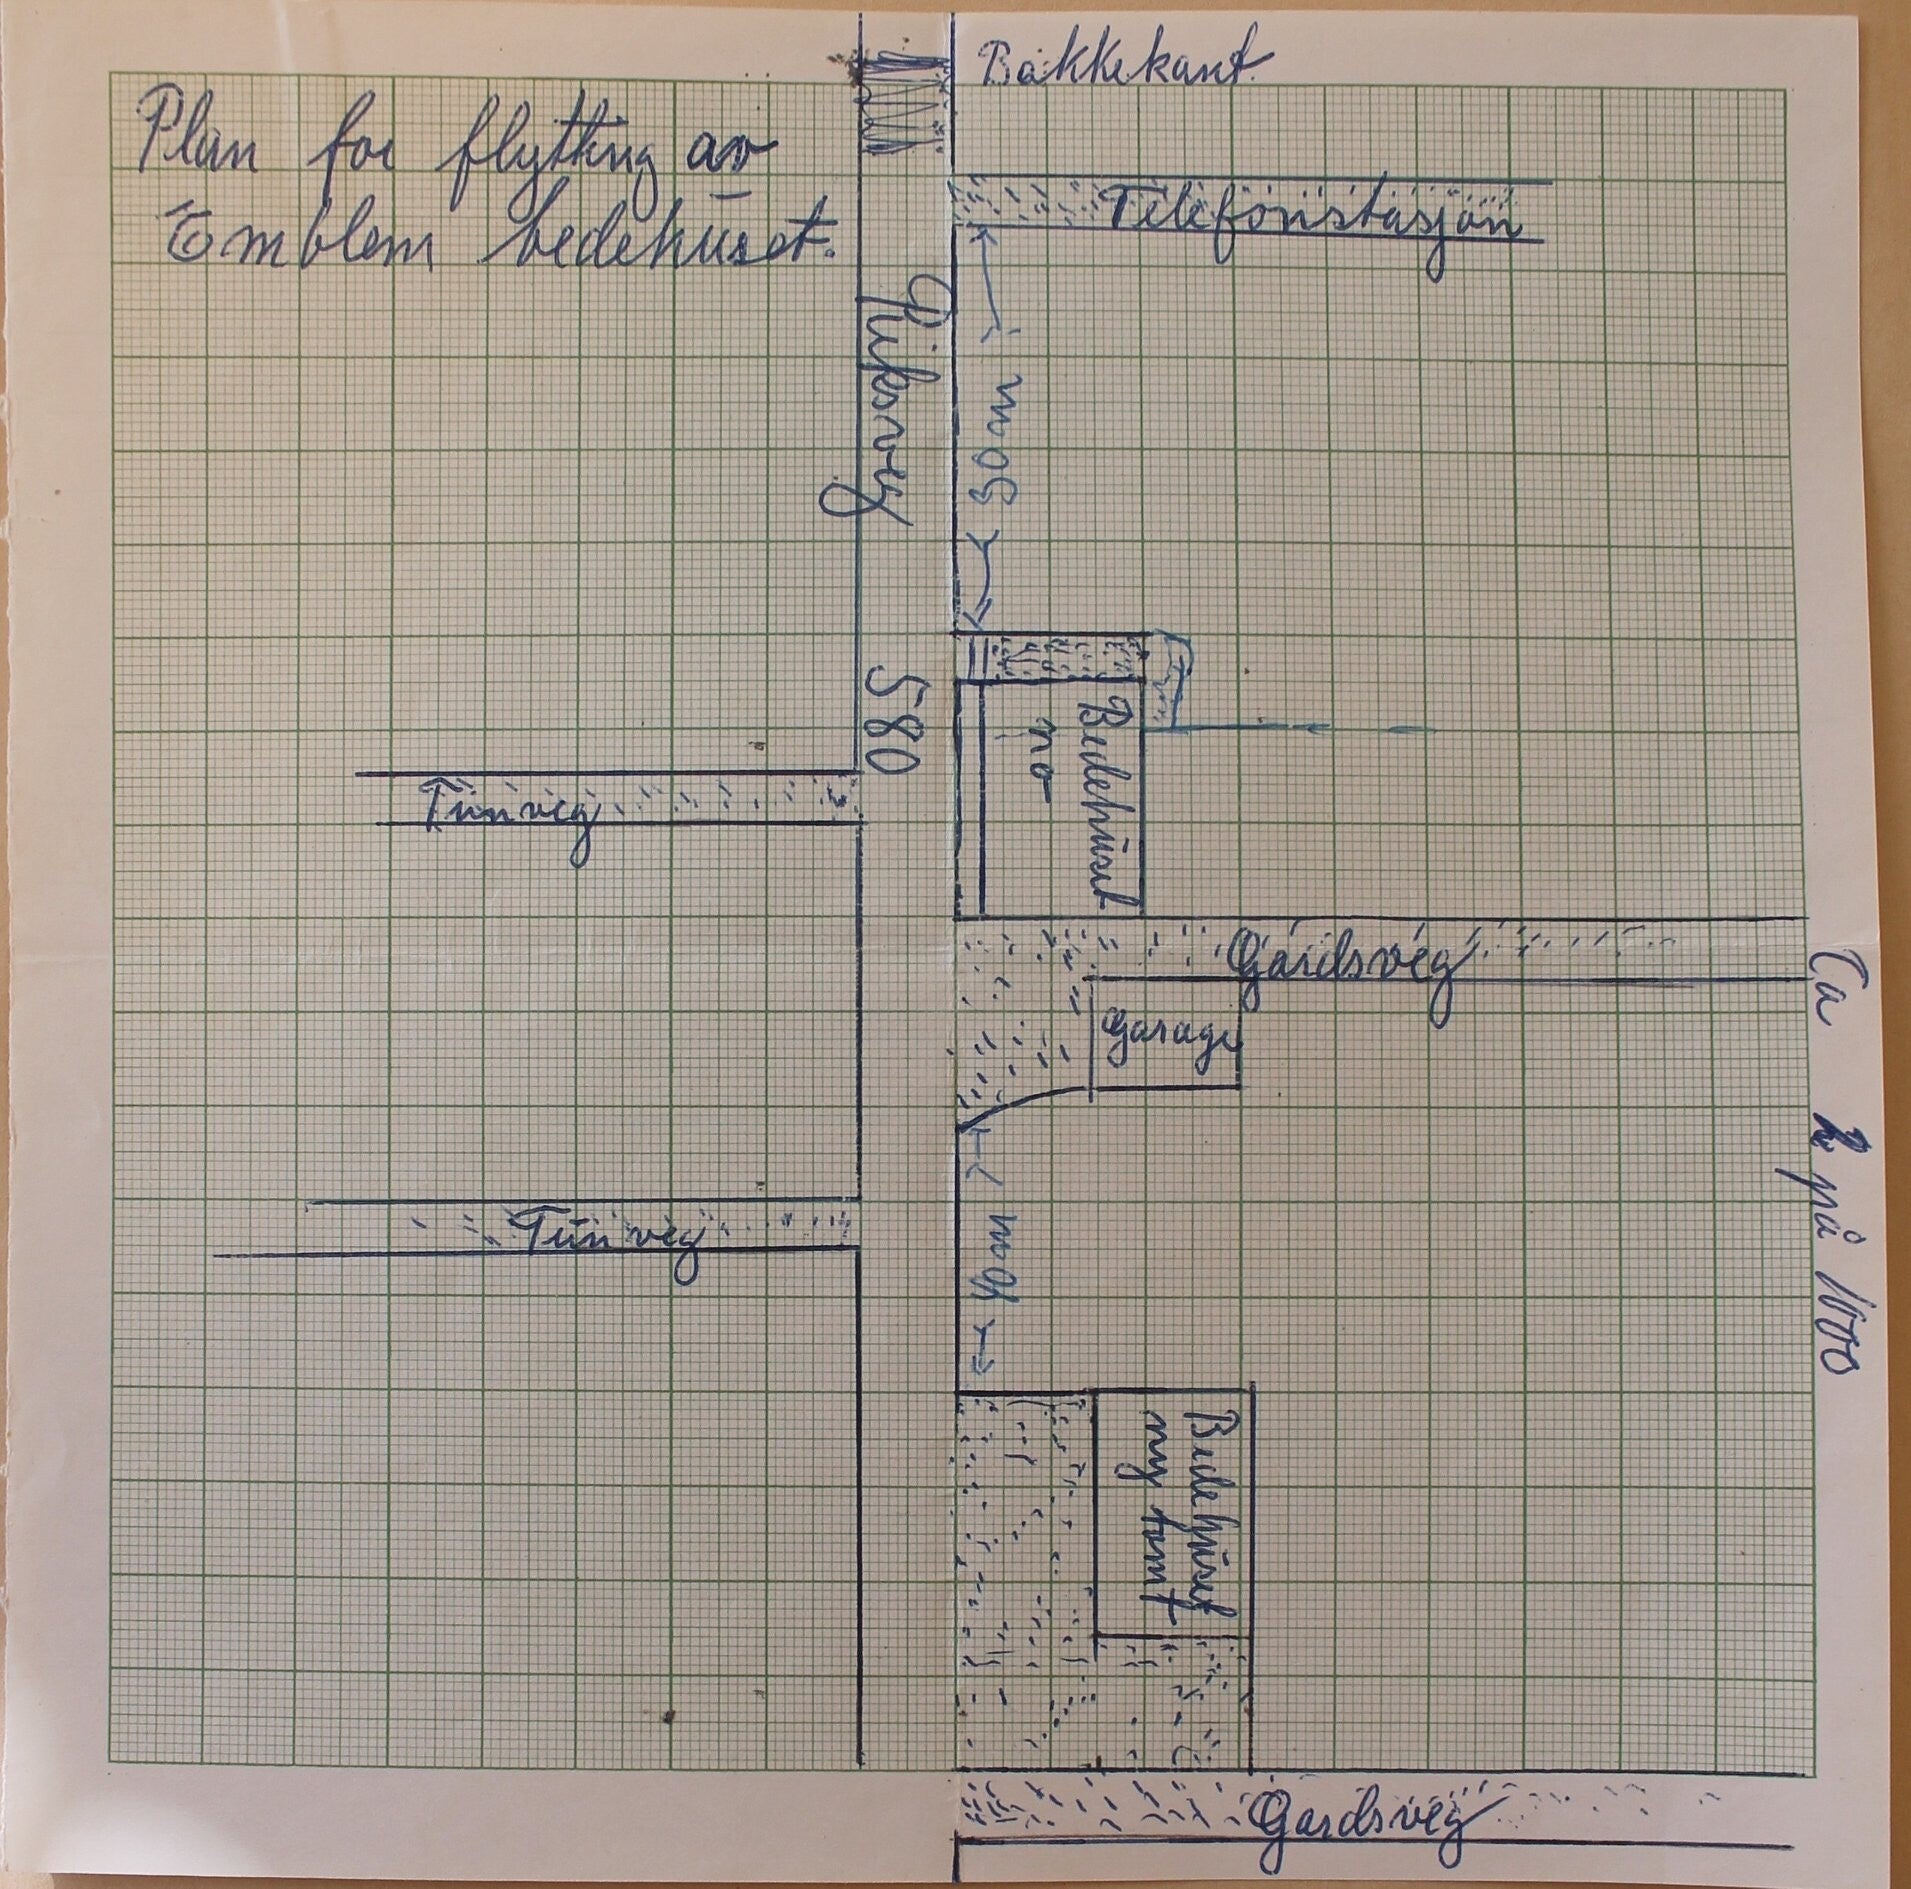 Bakkekant.
Plan for flytting av
Emblem bedehuset.
Telefonstasjon
Riksveg 580
30 m
Bedehuset
no
Tunveg
Gardsveg
Garage
Ca 2 på 1000
Tunveg
40 m
Bedehuset
ny tomt
Gardsveg